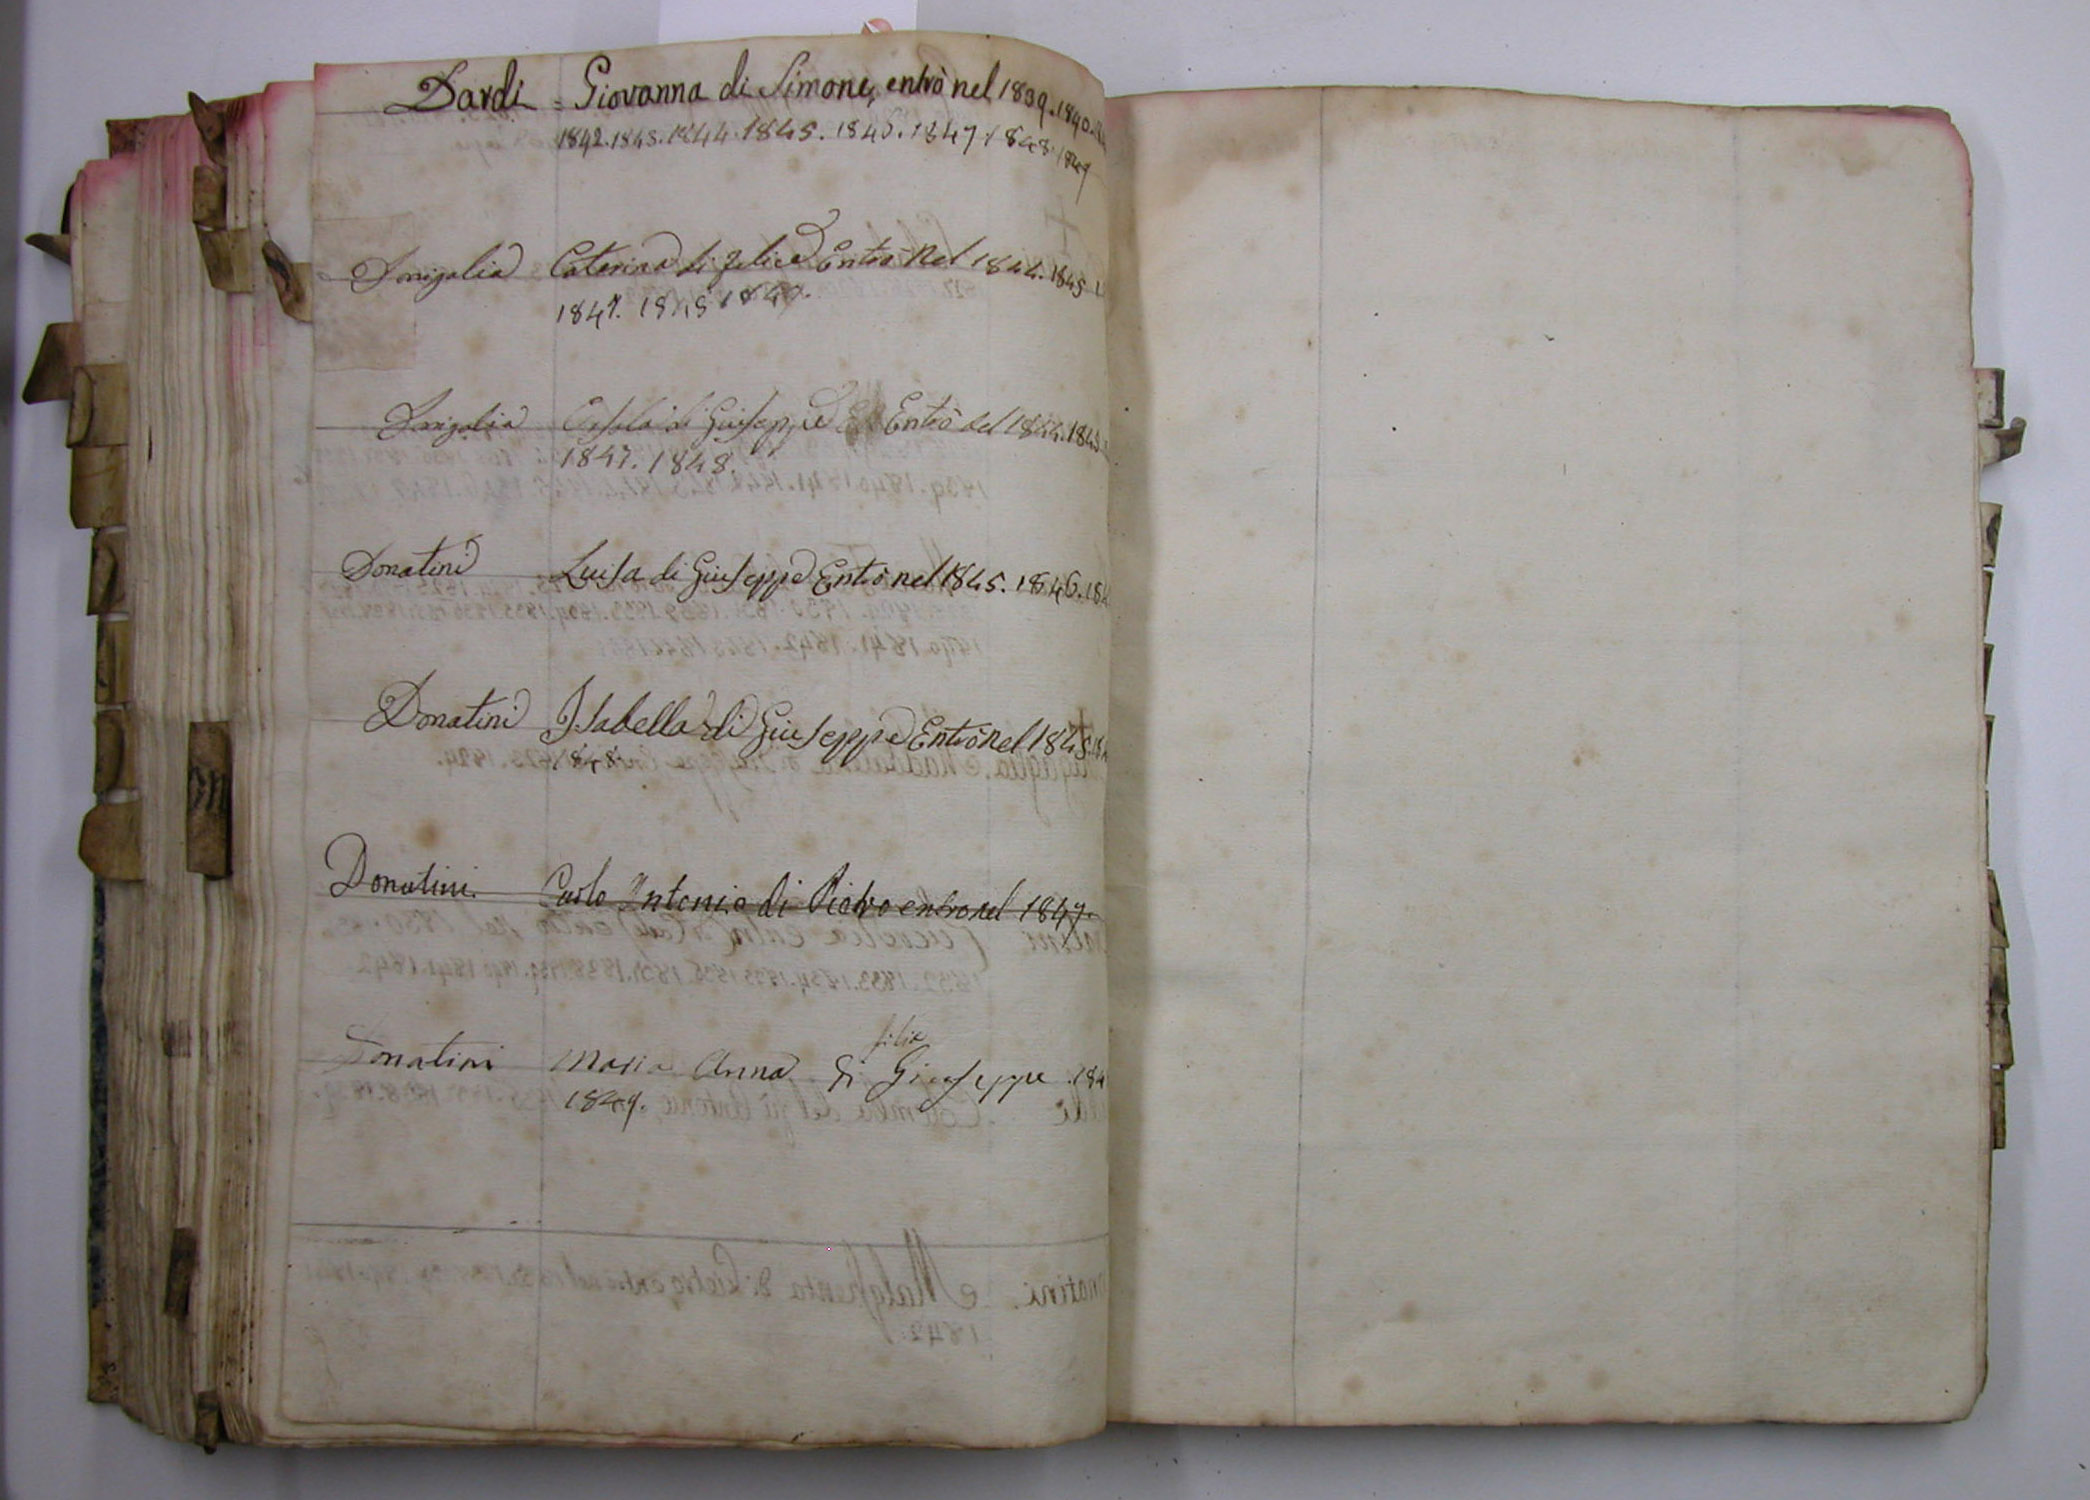 Dardi = Giovanna di Simone, entrò nel 1839. 1840.
1842. 1843. 1844. 1845. 1846. 1847. 1848. 1849
Donigalia Caterina di Felice Entrò Nel 1844. 1845
1847. 1848 1849.
Donigalia Orsola di Giuseppe Entrò del 1844. 1845
1847. 1848.
Donatini Luisa di Giuseppe Entrò nel 1845. 1846.
Donatini Isabella di Giuseppe Entrò Nel 1845.
1848.
Donatini Carlo Antonio di Pietro entro nel 1847.
filia
Donatini Maria Anna di Giuseppe
1849.